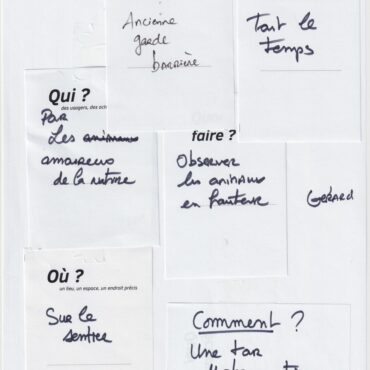 Ancienne
garde
barrière
Tout le
temps
Qui ?
des usagers, des ach
Par
Les animaux
amoureux
de la nature
faire ?
Observer
les animaux
en hauteur
Gérard
Où ?
un lieu, un espace, un endroit précis
Sur le
sentier
Comment ?
Une